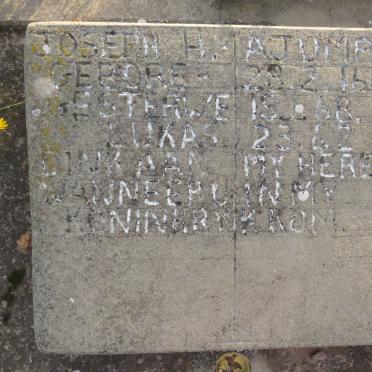 JOSEPH H. AJUMP
GEBORE - 28.2.16
GESTERWE 15.3.68.
LUKAS 23.42
DINK AAN MY HERE
WANNEER U IN MY
KONINKRYK KOM.